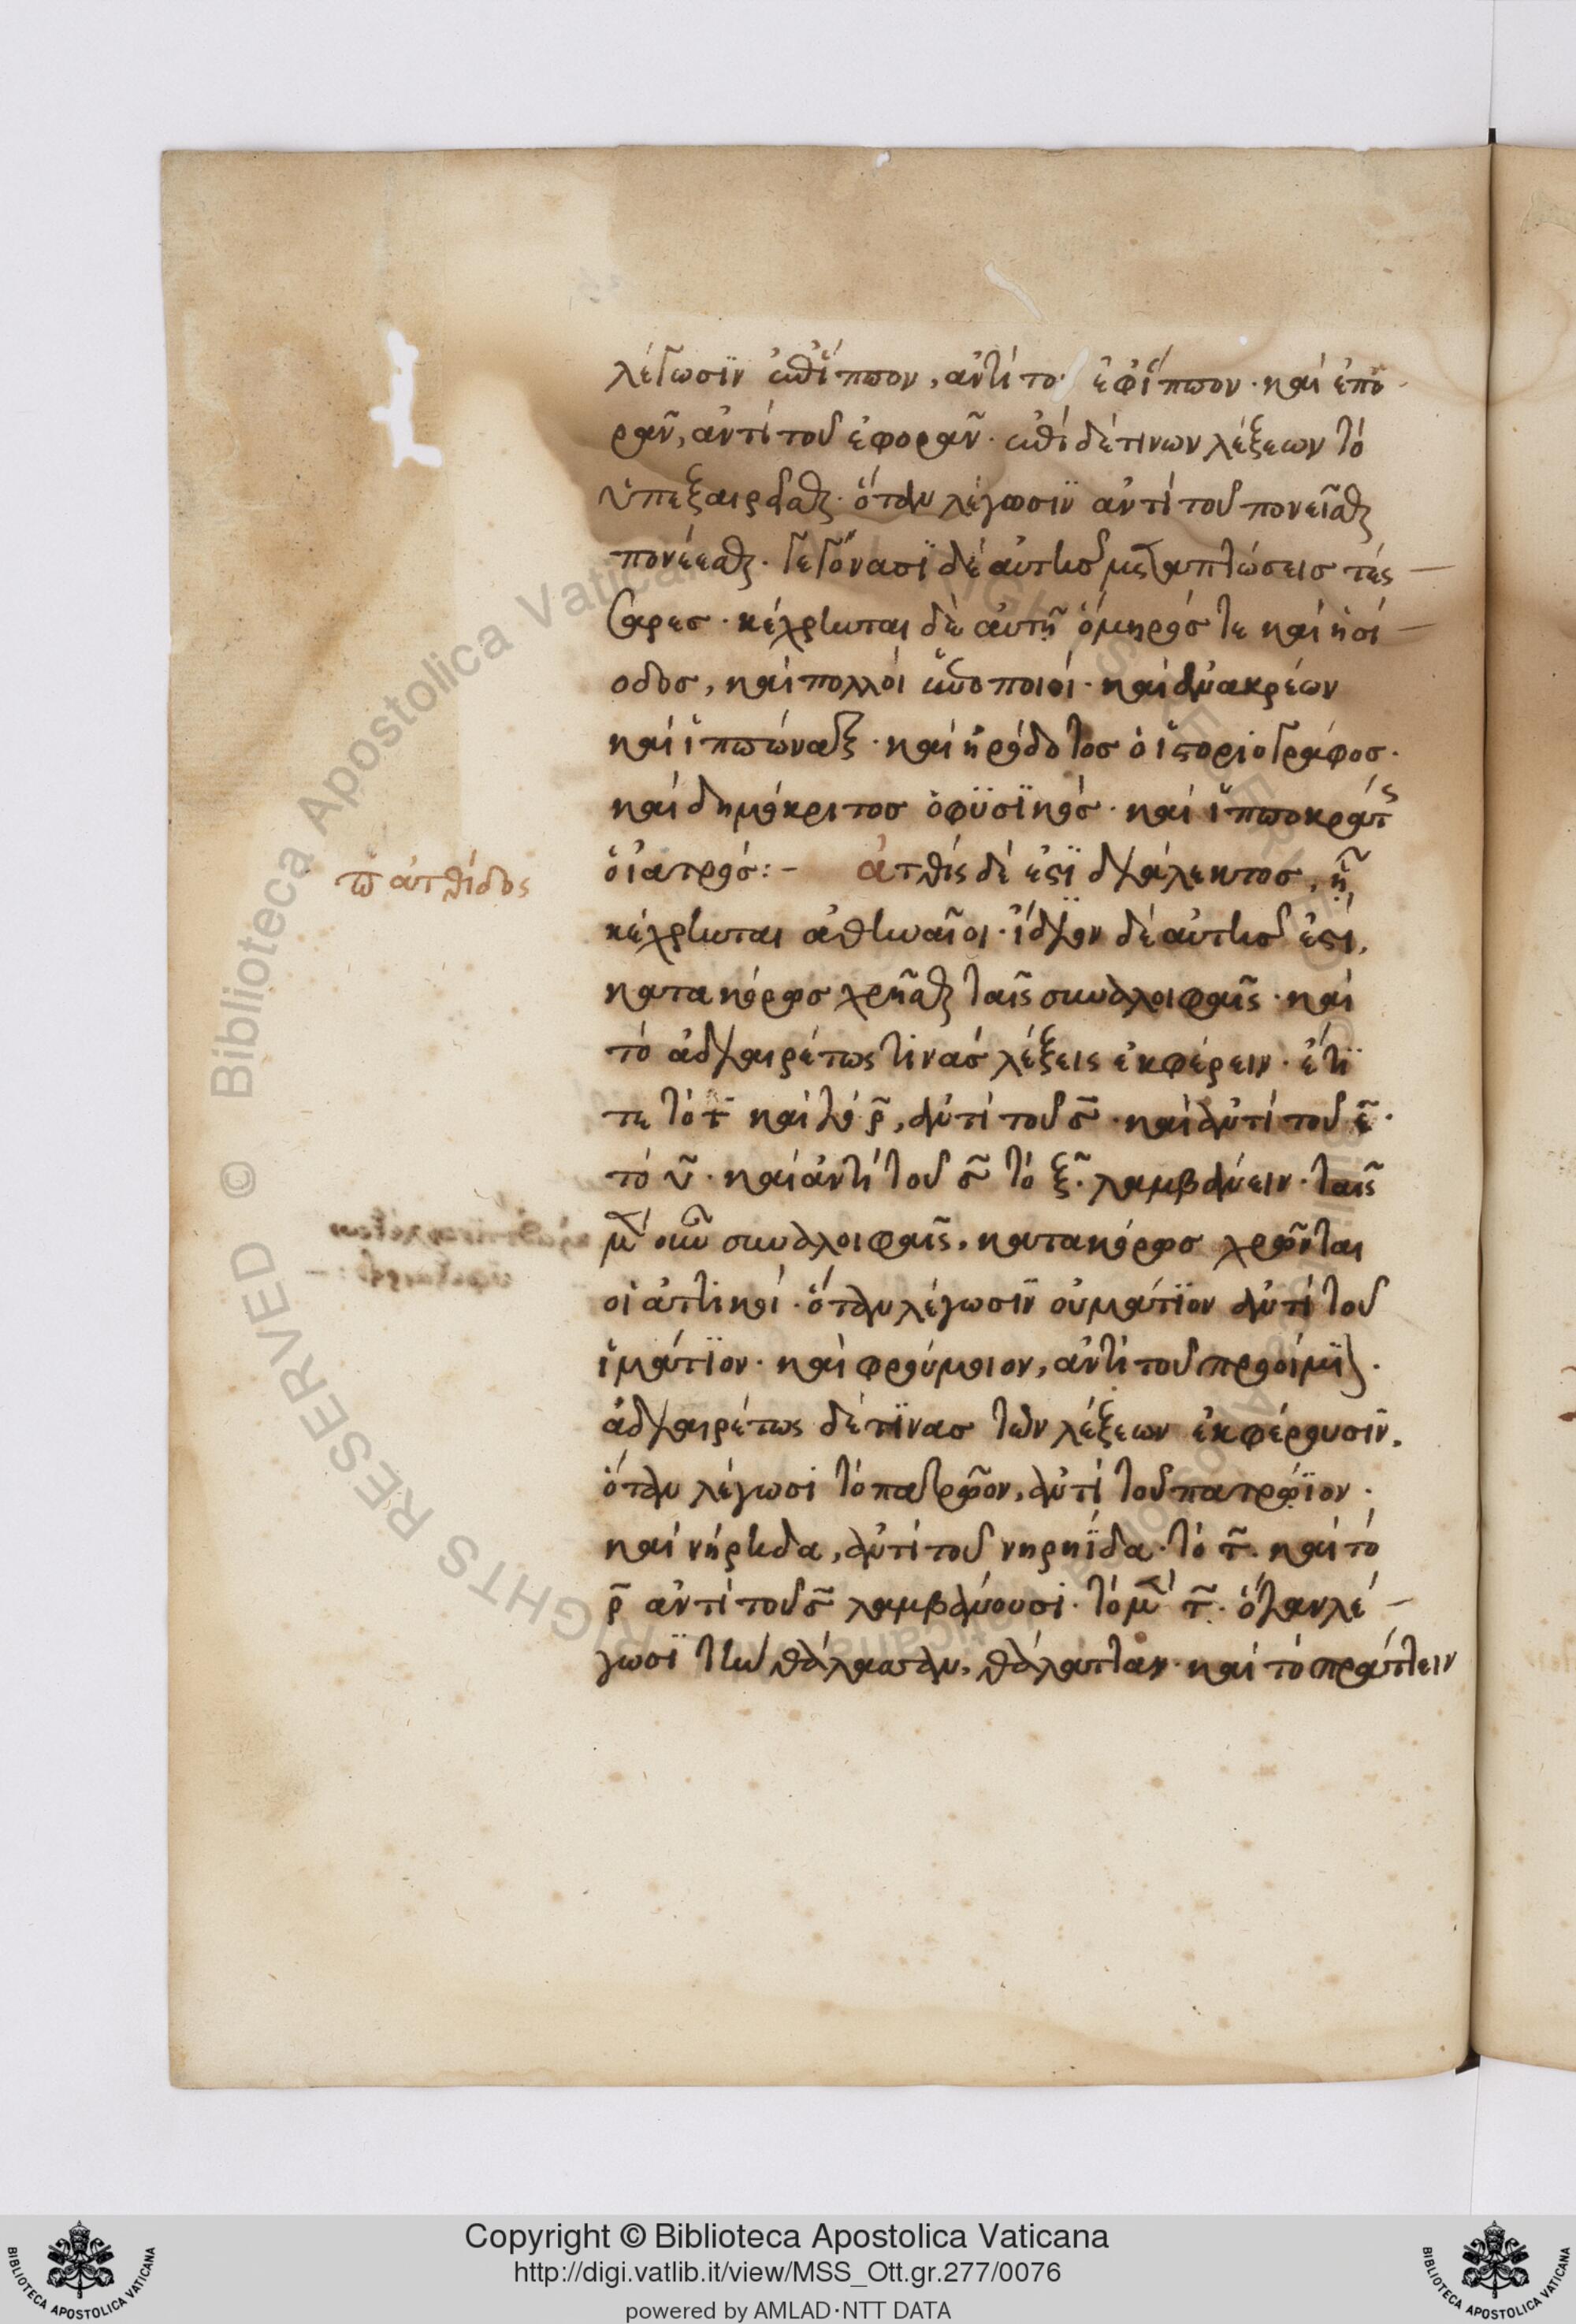 λέγωσϊν ἐπἵππον, ἀντὶ το ἐφἵππον· καὶ ἐπο
ρᾶν, ἀντὶ τοῦ ἐφορᾶν· ἐπὶ δέ τινων λέξεων τὸ
ὑπεξαιρεῖσθαι· ὅταν λέγωσϊν ἀντὶ τοῦ πονεῖσθαι
πονέεσθαι· γεγόνασϊ δὲ αὐτῆς μεταπτώσεις τές
σαρες· κέχρηται δὲ αὐτῇ ὅμηρός τε καὶ ἡσί
οδος, καὶ πολλοὶ ἐποποιοί· καὶ ἀνακρέων
καὶ ἱππώναξ· καὶ ἡρόδοτος ὁ ἱστοριογράφος·
καὶ δημόκριτος ὁ φϋσϊκός· καὶ ἱπποκράτης
ὁ ἰατρός:- ἀτθίς δέ ἐστϊ διάλεκτος, ᾗ
κέχρηται ἀθηναῖοι· ἴδιον δὲ αὐτῆς ἐστί,
κατακόρως χρῆσθαι ταῖς συναλοιφαῖς· καὶ
τὸ ἀδιαιρέτως τινὰς λέξεις ἐκφέρειν· ἔτϊ
τε τὸ τ καὶ τὸ ρ, ἀντὶ τοῦ σ· καὶ ἀντὶ τοῦ ε·
τὸ υ· καὶ ἀντὶ τοῦ σ τὸ ξ· λαμβάνειν· ταῖς
μὲν οὖν συναλοιφαῖς, κατακόρως χρῶνται
οἱ ἀττικοί· ὅταν λέγωσϊν οὑμάτϊον ἀντὶ τοῦ
ἱμάτϊον· καὶ φρούμιον, ἀντὶ τοῦ προοίμϊον·
ἀδιαιρέτως δέ τϊνας τῶν λέξεων ἐκφέρουσϊν,
ὅταν λέγωσι τὸ πατρῶον, ἀντὶ τοῦ πατρώϊον·
καὶ νήρηδα, ἀντὶ τοῦ νηρηΐδα· τὸ τ· καὶ τὸ
ρ ἀντὶ τοῦ σ λαμβάνουσι· τὸ μὲν τ· ὅταν λέ
γωσϊ τὴν θάλασσαν, θάλατταν· καὶ τὸ πράττειν
π ἀτθίδος
Copyright © Biblioteca Apostolica Vaticana
http://digi.vatlib.it/view/MSS_Ott.gr.277/0076
powered by AMLAD·NTT DATA